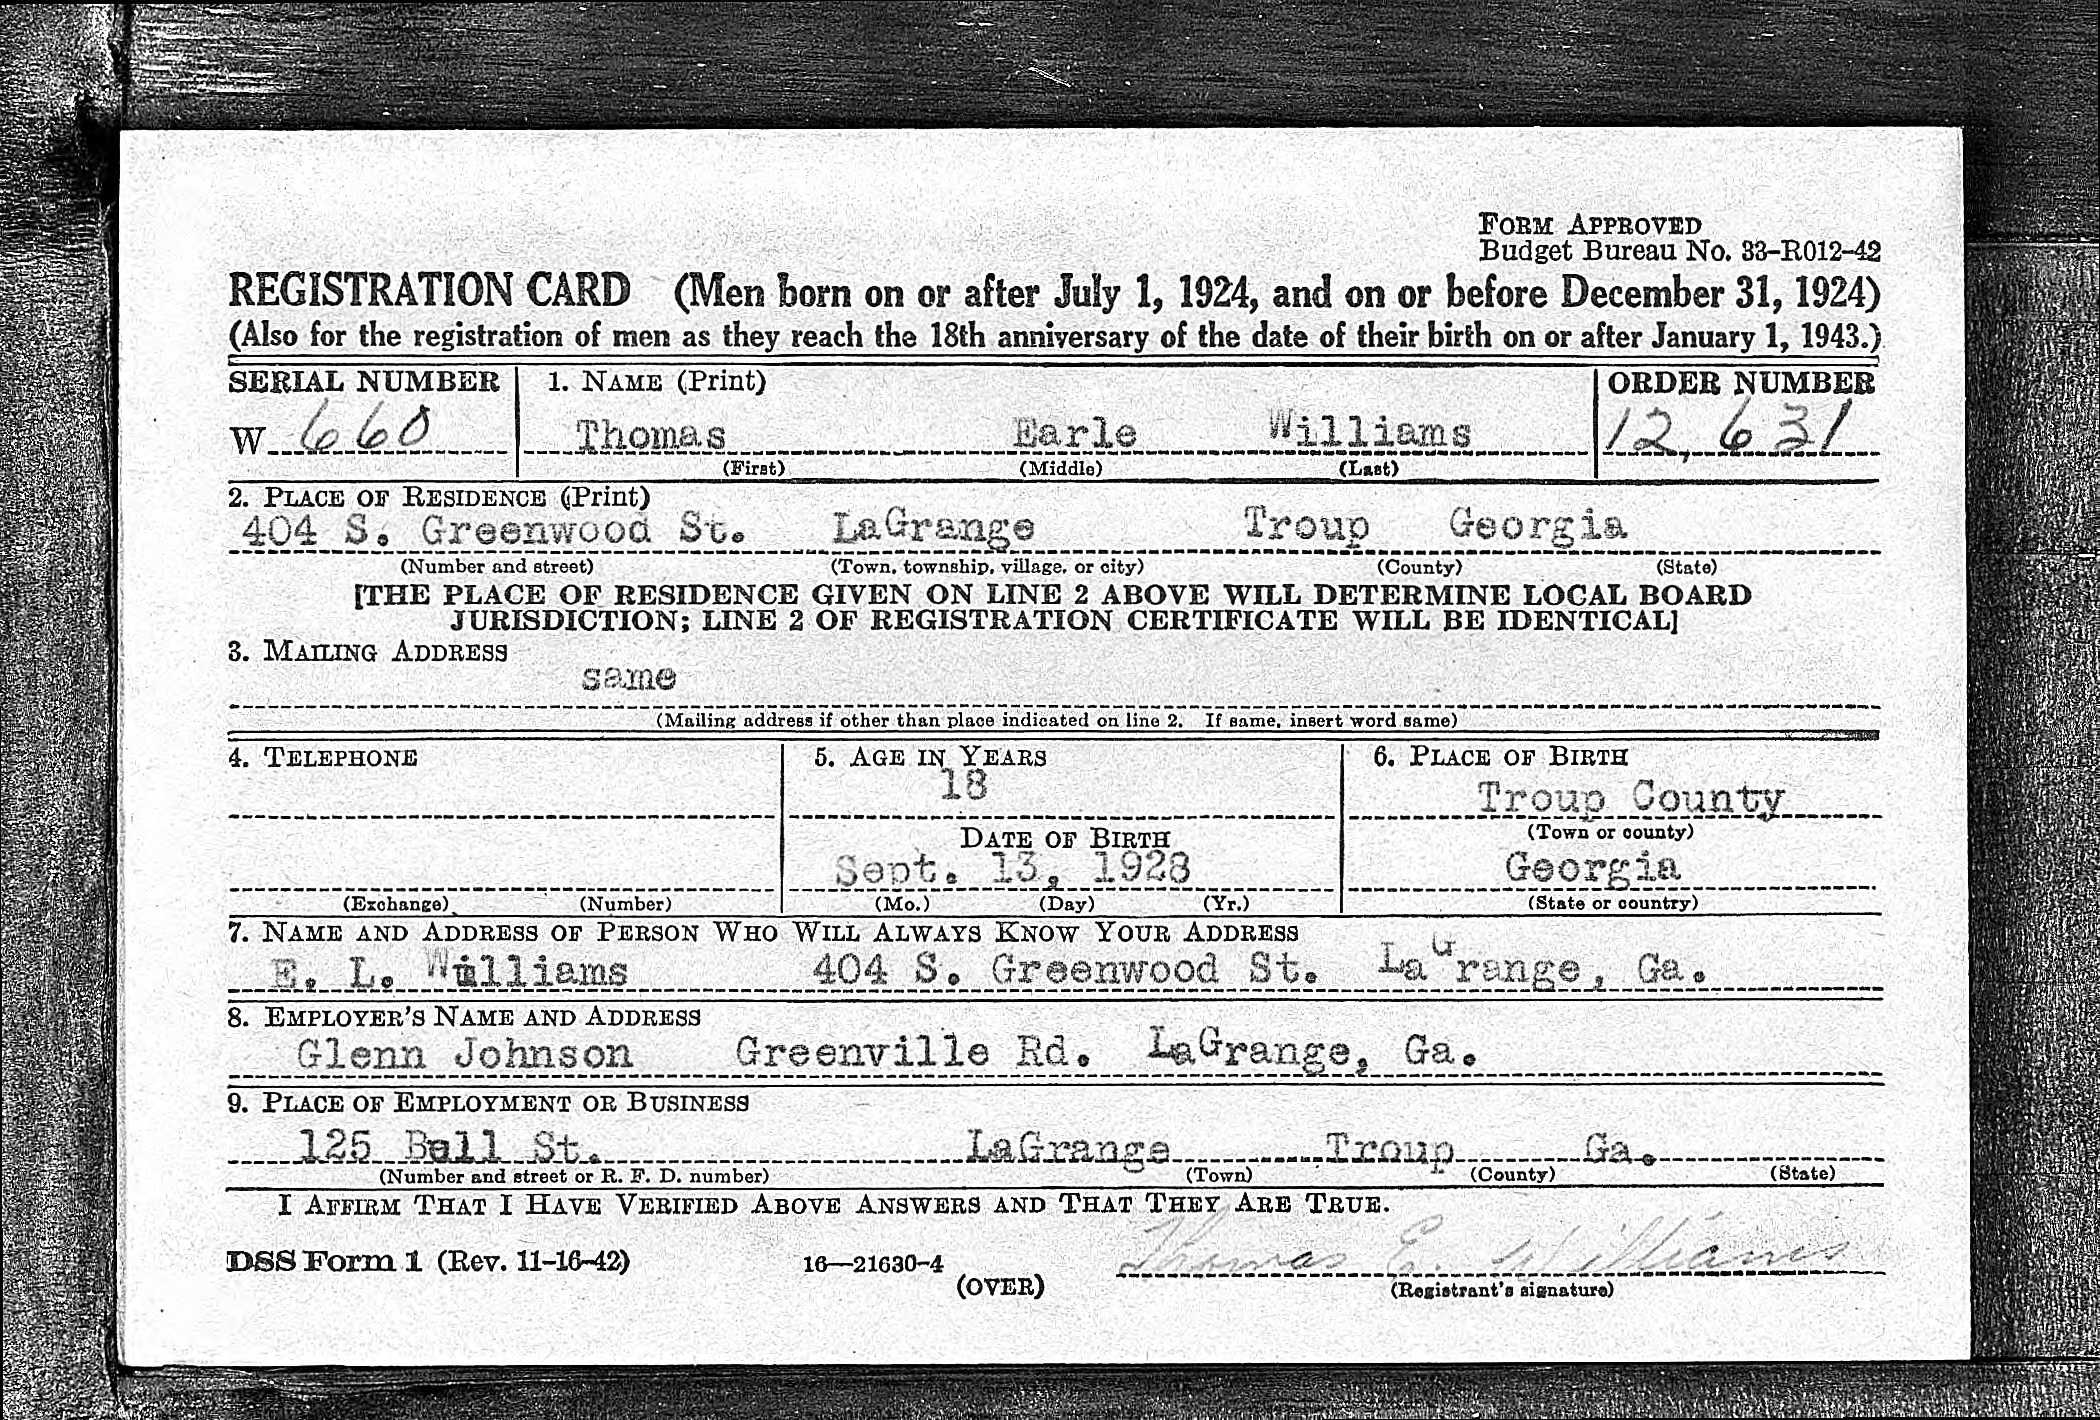 FORM APPROVED
Budget Bureau No. 33-R012-42
REGISTRATION CARD (Men born on or after July 1, 1924, and on or before December 31, 1924)
(Also for the registration of men as they reach the 18th anniversary of the date of their birth on or after January 1, 1943.)
SERIAL NUMBER 1. NAME (Print) ORDER NUMBER
W 660 Thomas Earle Williams 12,631
(First) (Middle) (Last)
2. PLACE OF RESIDENCE (Print)
404 S. Greenwood St. LaGrange Troup Georgia
(Number and street) (Town, township, village, or city) (County) (State)
[THE PLACE OF RESIDENCE GIVEN ON LINE 2 ABOVE WILL DETERMINE LOCAL BOARD
JURISDICTION; LINE 2 OF REGISTRATION CERTIFICATE WILL BE IDENTICAL]
3. MAILING ADDRESS
same
(Mailing address if other than place indicated on line 2. If same, insert word same)
4. TELEPHONE 5. AGE IN YEARS 6. PLACE OF BIRTH
18 Troup County
DATE OF BIRTH (Town or county)
Sept. 13, 1928 Georgia
(Exchange) (Number) (Mo.) (Day) (Yr.) (State or country)
7. NAME AND ADDRESS OF PERSON WHO WILL ALWAYS KNOW YOUR ADDRESS
E. L. Williams 404 S. Greenwood St. LaGrange, Ga.
8. EMPLOYER'S NAME AND ADDRESS
Glenn Johnson Greenville Rd. LaGrange, Ga.
9. PLACE OF EMPLOYMENT OR BUSINESS
125 Bull St. LaGrange Troup Ga.
(Number and street or R. F. D. number) (Town) (County) (State)
I AFFIRM THAT I HAVE VERIFIED ABOVE ANSWERS AND THAT THEY ARE TRUE.
DSS Form 1 (Rev. 11-16-42) 16—21630-4 Thomas E. Williams
(OVER) (Registrant's signature)